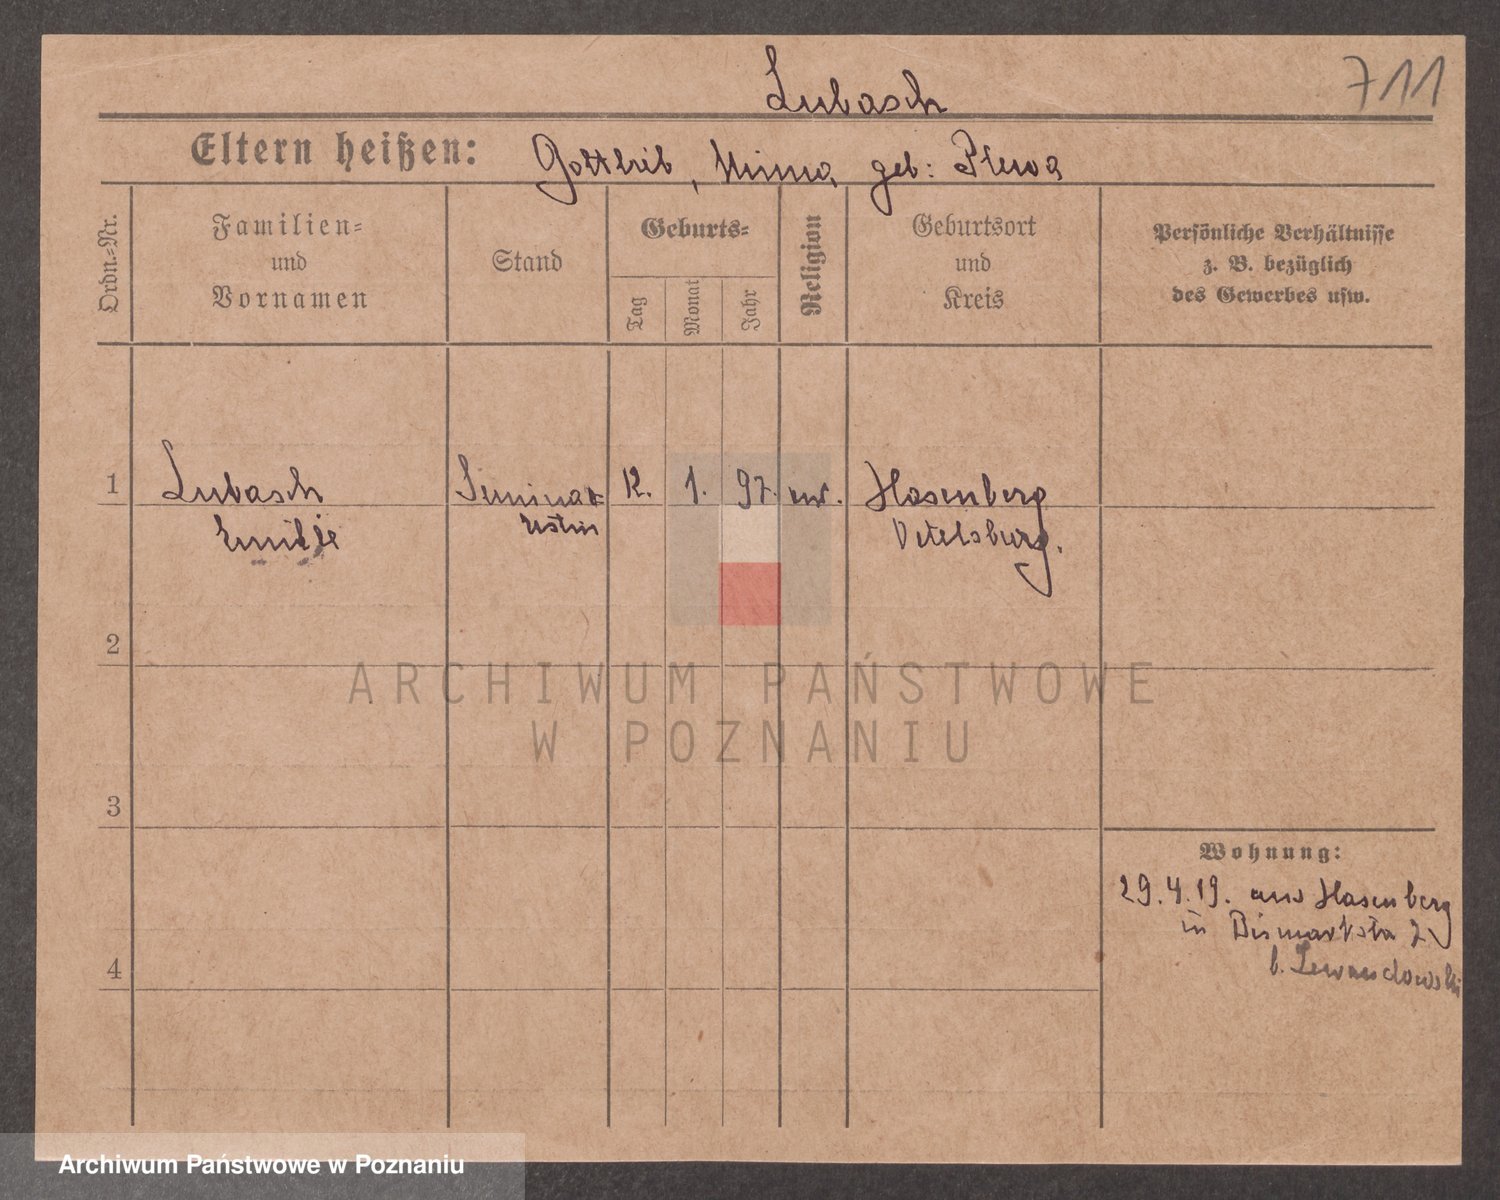 Lubasch
711
Eltern heißen: Gottlieb, Minna geb: Plewa
Ordn.-Nr.
Familien-
und
Vornamen
Stand
Geburts-
Tag
Monat
Jahr
Religion
Geburtsort
und
Kreis
Persönliche Verhältnisse
z. B. bezüglich
des Gewerbes usw.
1 Lubasch Seminar 12. 1. 97. ev. Hasenberg
Emilie istin
2
3
4
Wohnung:
29.4.19. aus Hasenberg
in Bismarkstr
b. Lewandowski
ARCHIWUM PAŃSTWOWE
W POZNANIU
Archiwum Państwowe w Poznaniu